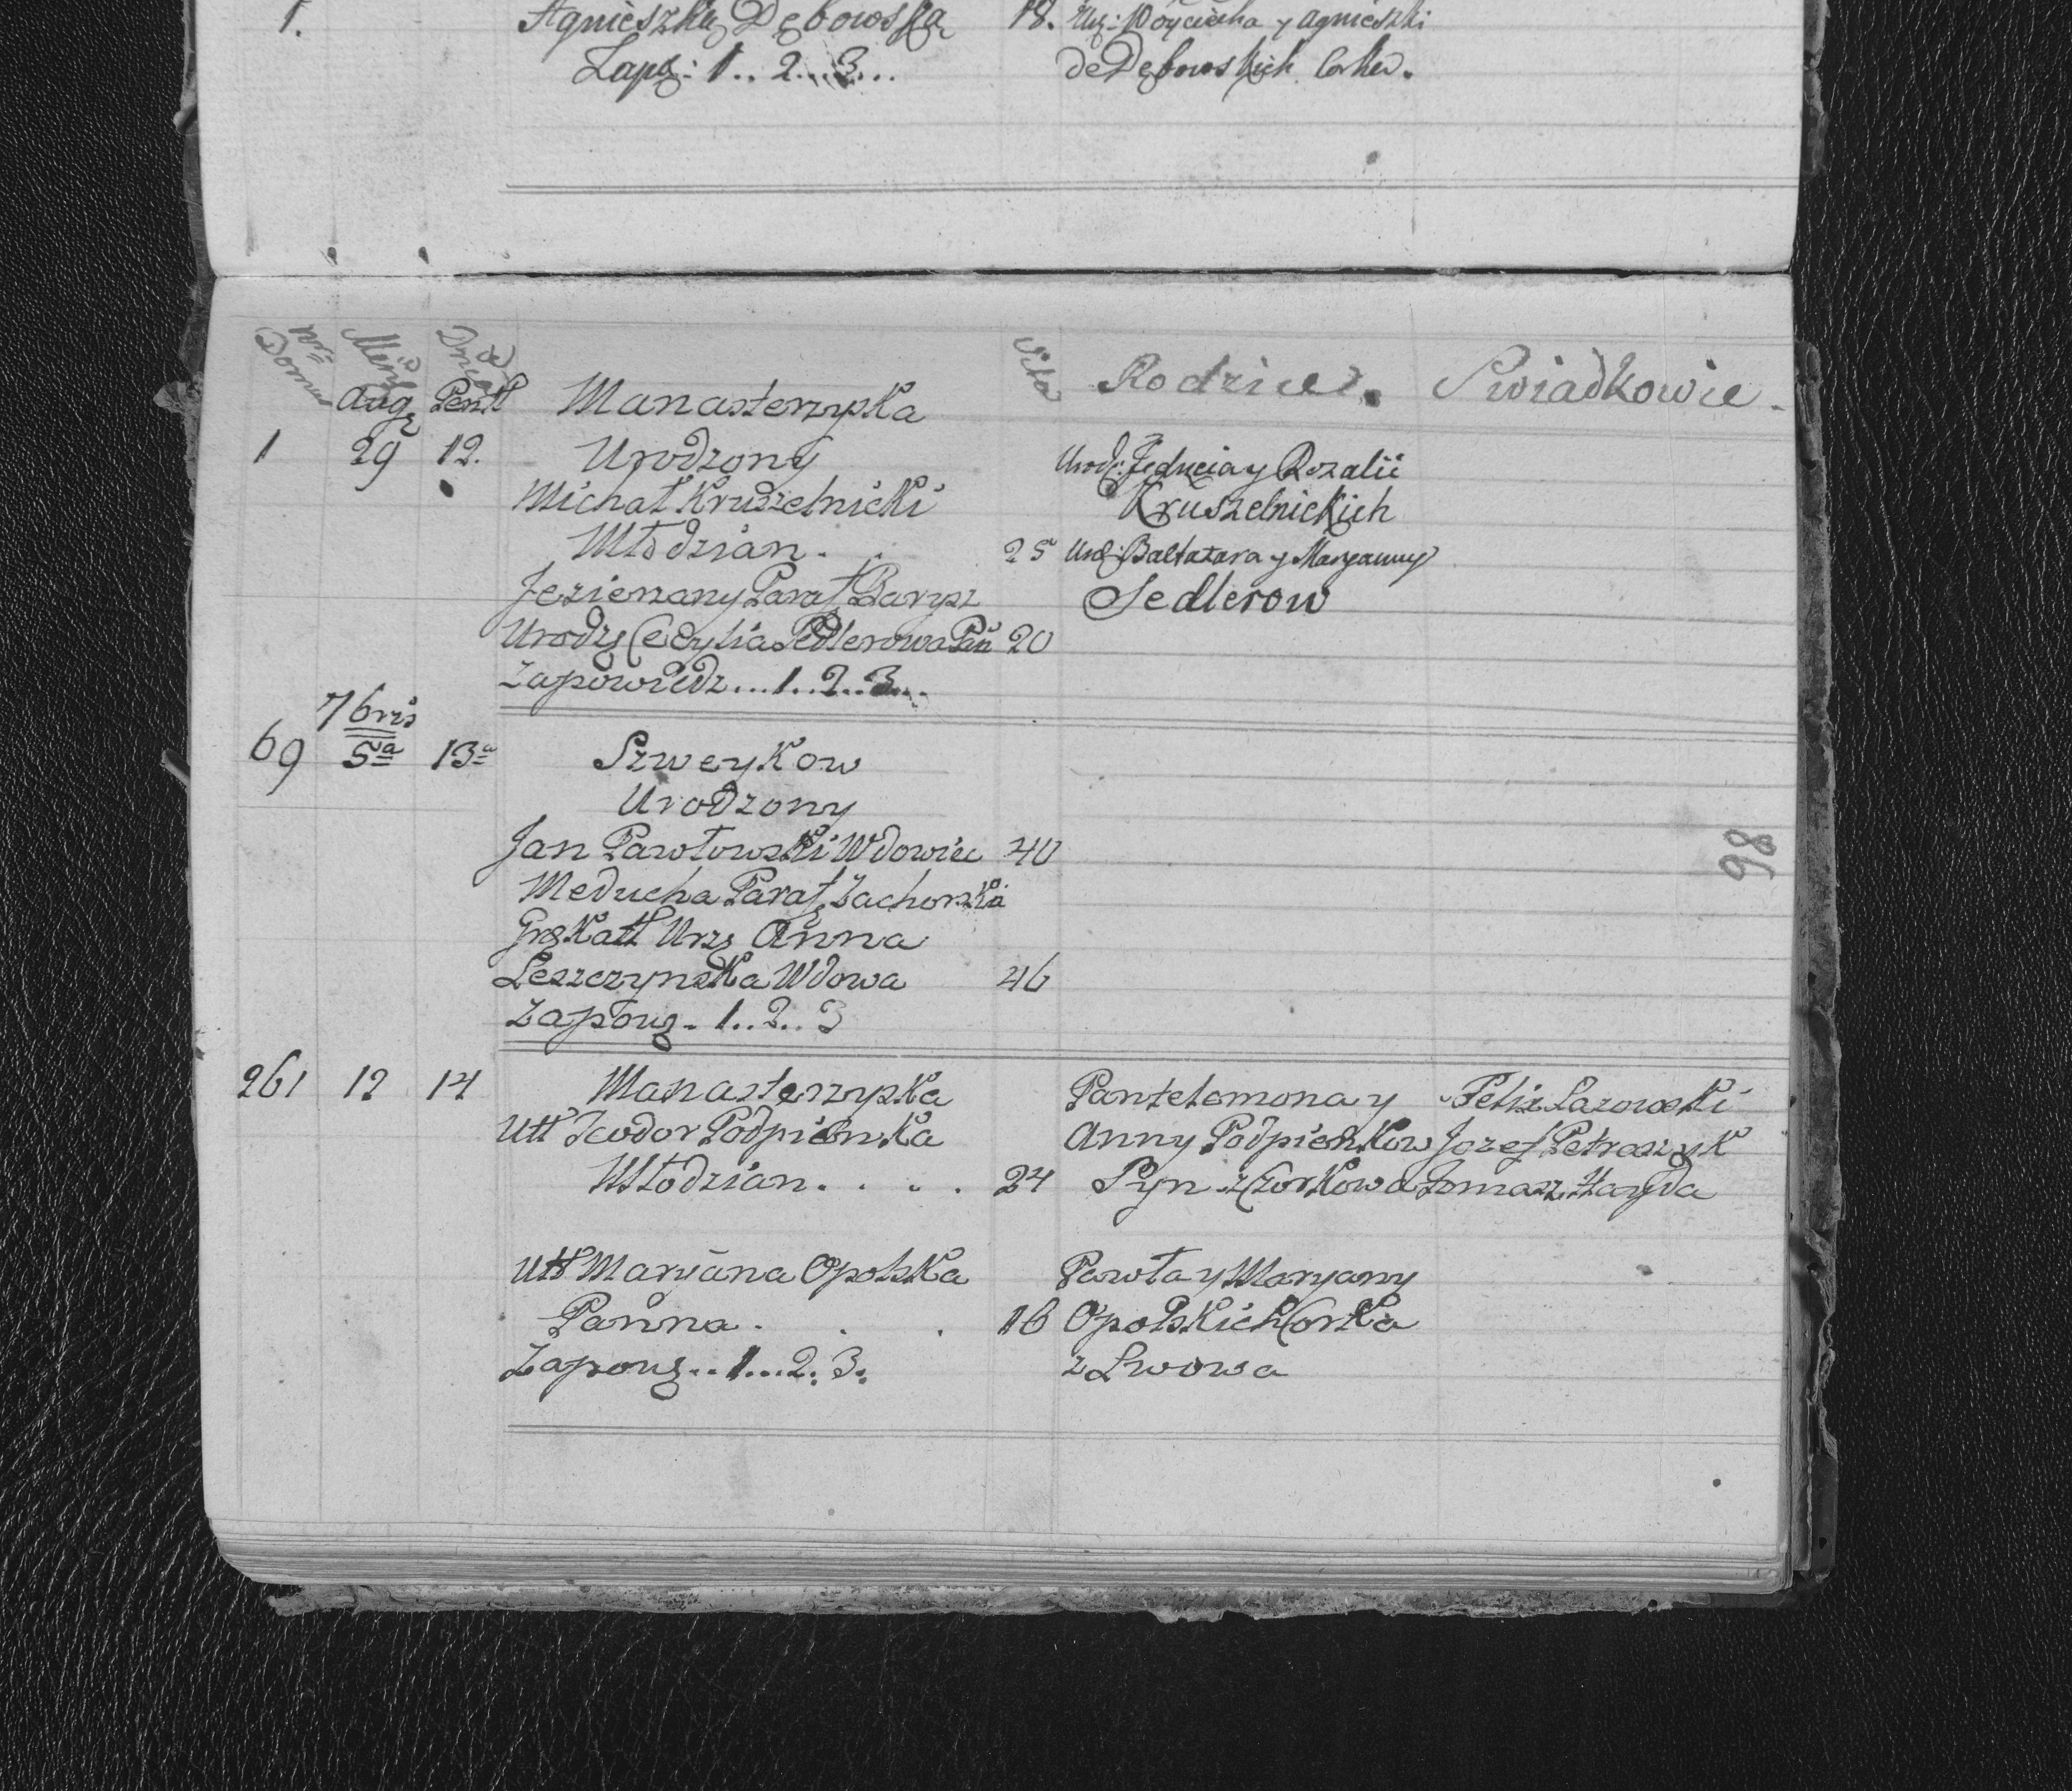 1. Agnieszka Dębowska 18. Ur: Woyciecha y Agnieszki
Zapo: 1.. 2... 3... de Dębowskich Corka.
Nro Domus Mens Dnica Vita Rodzice. Swiadkowie.
Aug Pent Manasterzyska
1 29 12. Urodzony Urodz: Jędrzeia y Rozalii
Michał Kruszelnicki Kruszelnickich
Młodzian. . 25 Urod: Baltazara y Maryanny
Jezierzany Paraf Barysz Sedlerow
Urodz Cecylia Sedlerowa Pań 20
Zapowiedz... 1.. 2.. 3...
7bris
69 5a 13a Szweykow
Urodzony
Jan Pawłowski Wdowiec 40
Meducha Paraf
Katt Urz Anna
Leszczynska Wdowa 46
Zapow. 1.. 2.. 3
261 12 14 Manasterzyska Pantelemona y Felix Lazowski
Utt Teodor Podpienka Anny Podpienkow Jozef Petraszyk
Młodzian. . . . 24 Syn z Czorkowa Tomasz Hayda
Utt Maryana Opolska Pawła y Maryany
Panna. . . 16 Opolskich Corka
Zapow.. 1... 2. 3. z Lwowa
98